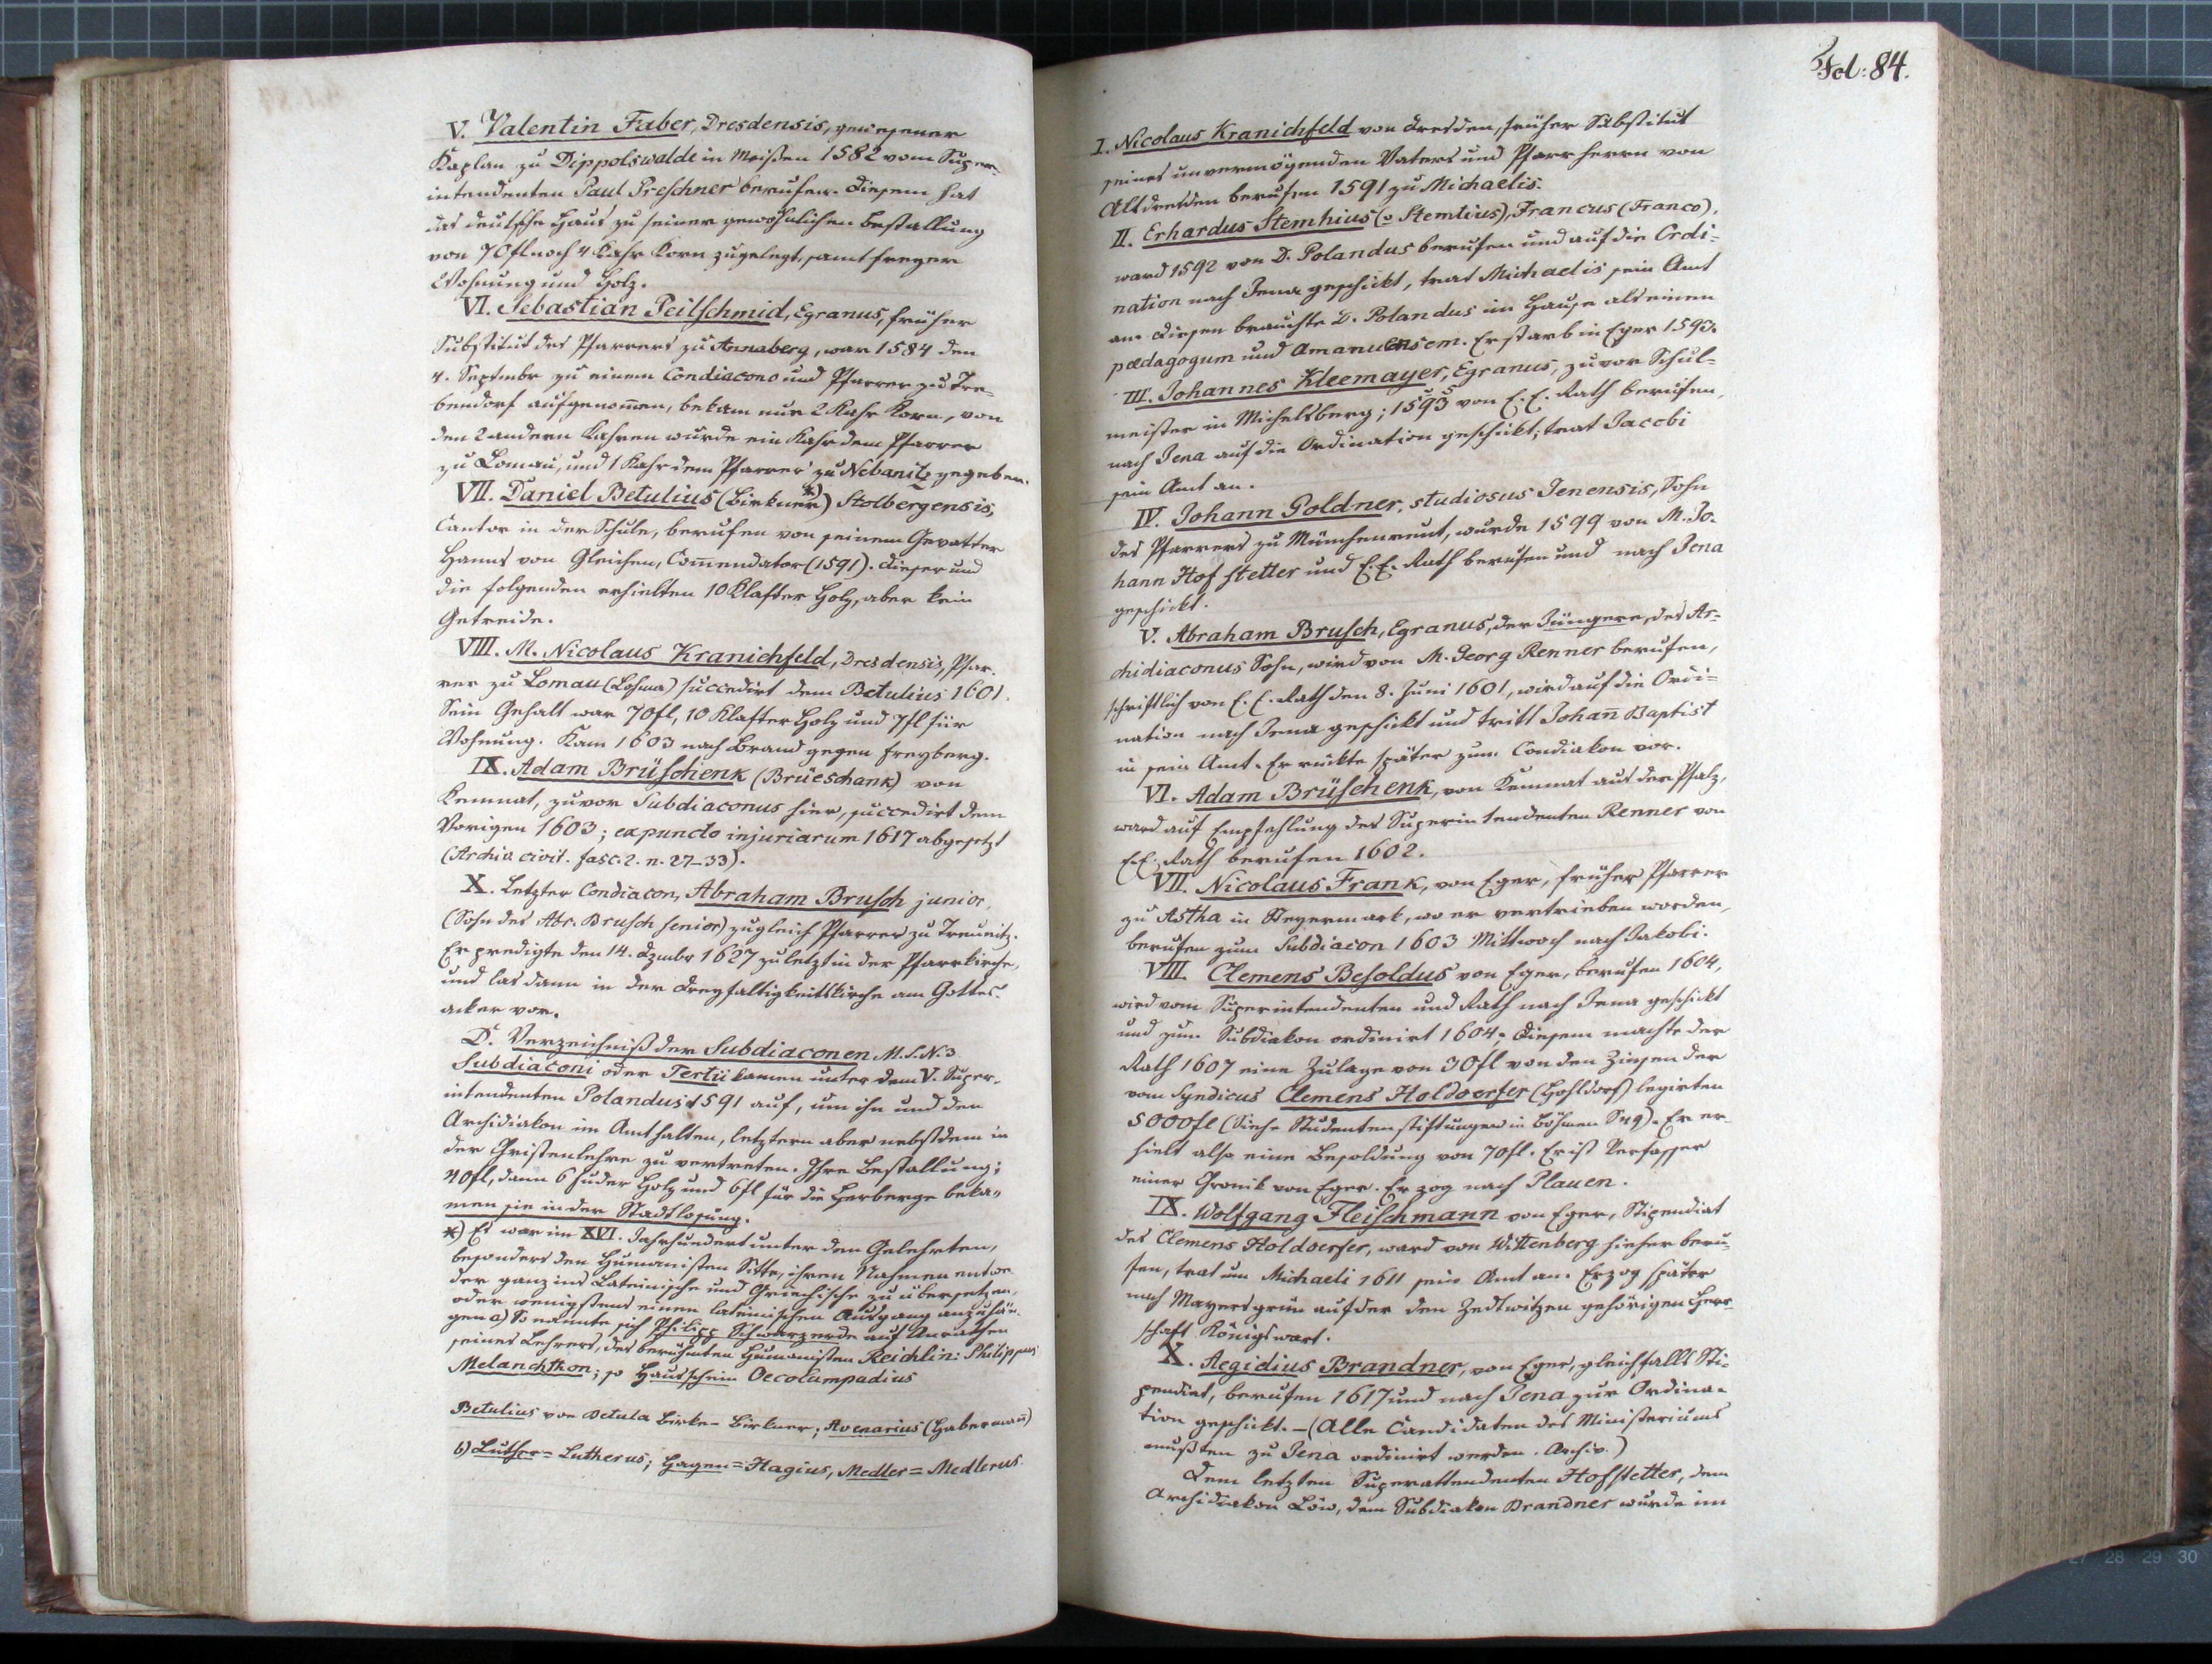 V. Valentin Faber, Dresdensis, gewesener
Kaplan zu Dippolswalde in Meißen 1582 vom Super-
intendenten Paul Preschner berufen. Diesem hat
das deutsche Haus zu seiner gewöhnlichen Bestallung
von 70 fl noch 4 Kahr Korn zugelegt, samt freyer
Wohnung und Holz.
VI. Sebastian Peilschmid, Egranus, früher
Substitut des Pfarrers zu Annaberg, war 1584 den
4. Septmbr zu einem Condiacono und Pfarrer zu Tre-
bendorf aufgenom̄en, bekam nur 2 Kahr Korn, von
den 2 andern Kahren wurde ein Kahr dem Pfarrer
zu Lomau, und 1 Kahr dem Pfarrer zu Nebanitz gegeben.
VII. Daniel Betulius (Birkner *)) Stolbergensis,
Cantor in der Schule, berufen von seinem Gevatter
Hanns von Gleichen, Com̄endator (1591). Dieser und
die folgenden erhielten 10 Klafter Holz, aber kein
Getreide.
VIII. M. Nicolaus Kranichfeld, Dresdensis, Pfar-
rer zu Lomau (Lohma) succedirt dem Betulius 1601.
Sein Gehalt war 70 fl, 10 Klafter Holz und 7 fl für
Wohnung. Kam 1603 nach Brand gegen Freyberg.
IX. Adam Brüschenk (Brüeschank) von
Kemnat, zuvor Subdiaconus hier, succedirt dem
Vorigen 1603; ex puncto injuriarum 1617 abgesetzt
(Archiv. civit. fasc. 2. n. 27-33).
X. Letzter Condiacon, Abraham Brusch junior,
(Sohn des Abr. Brusch senior) zugleich Pfarrer zu Treunitz.
Er predigte den 14. Dzmbr 1627 zuletzt in der Pfarrkirche,
und las dann in der Dreyfaltigkeitskirche am Gottes-
acker vor.
D. Verzeichniß der Subdiaconen M.S.N. 3
Subdiaconi oder Tertii kamen unter dem V. Super-
intendenten Polandus 1591 auf, um ihn und den
Archidiakon im Amt halten, letztern aber nebstdem in
der Christenlehre zu vertreten. Ihre Bestallung:
40 fl, dann 6 Fuder Holz und 6 fl für die Herberge beka-
men sie in der Stadtlosung.
*) Es war im XVI. Jahrhundert unter den Gelehrten,
besonders den Humanisten Sitte, ihren Nahmen entwe
der ganz ins Lateinische und Griechische zu übersetzen,
oder wenigstens einen lateinischen Ausgang anzuhän-
gen a) So nannte sich Philipp Schwarzerde auf Anrathen
seines Lehrers, des berühmten Humanisten Reichlin: Philippus
Melanchthon; so Hausschein Oecolampadius
Betulius von Betula Birke - Birkner; Avenarius (Haberman̄)
b) Luther = Lutherus; Hagen = Hagius, Medler = Medlerus.
Fol: 84.
I. Nicolaus Kranichfeld von Dresden, früher Substitut
seines unvermögenden Vaters und Pfarrherrn von
Altdresden berufen 1591 zu Michaelis.
II. Erhardus Stemhius (v Stemlius), Francus (Franco),
ward 1592 von D. Polandus berufen und auf die Ordi-
nation nach Jena geschickt, trat Michaelis sein Amt
an. Diesen brauchte D. Polandus im Hause als einen
pædagogum und Amanuensem. Er starb in Eger 1593.
III. Johannes Kleemayer, Egranus, zuvor Schul-
meister in Michelsberg; 1593 von E. E. Rath berufen,
nach Jena auf die Ordination geschickt; trat Jacobi
sein Amt an.
IV. Johann Goldner, studiosus Jenensis, Sohn
des Pfarrers zu Münchenreut, wurde 1599 von M. Jo-
hann Hofstetter und E. E. Rath berufen und nach Jena
geschickt.
V. Abraham Brusch, Egranus, der Jüngere, des Ar-
chidiaconus Sohn, wird von M. Georg Renner berufen,
schriftlich von E. E. Rath den 8. Juni 1601, wird auf die Ordi-
nation nach Jena geschickt und tritt Johan̄ Baptist
in sein Amt. Er rückte später zum Condiakon vor.
VI. Adam Brüschenk, von Kemnat aus der Pfalz,
ward auf Empfehlung des Superintendenten Renner von
E. E. Rath berufen 1602.
VII. Nicolaus Frank, von Eger, früher Pfarrer
zu Astha in Steyermark, wo er vertrieben worden,
berufen zum Subdiacon 1603 Mittwoch nach Jakobi.
VIII. Clemens Besoldus von Eger, berufen 1604,
wird vom Superintendenten und Rath nach Jena geschickt
und zum Subdiakon ordinirt 1604. Diesem machte der
Rath 1607 eine Zulage von 30 fl von den Zinsen der
vom Syndicus Clemens Holdoerfer (Hohldorf) legirten
5000 fl (Siehe Studentenstiftungen in Böhmen S 49). Er er-
hielt also eine Besoldung von 70 fl. Er ist Verfasser
einer Chronik von Eger. Er zog nach Plauen.
IX. Wolfgang Fleischmann von Eger, Stipendiat
des Clemens Holdoerfer, ward von Wittenberg hieher beru-
fen, trat um Michaeli 1611 sein Amt an. Er zog später
nach Mayersgrün auf der den Zedtwitzen gehörigen Herr-
schaft Königswart.
X. Aegidius Brandner, von Eger, gleichfalls Sti-
pendiat, berufen 1617 und nach Jena zur Ordina-
tion geschickt. - (Alle Candidaten des Ministeriums
mußten zu Jena ordinirt werden. Archiv.)
Dem letzten Superattendenten Hofstetter, dem
Archidiakon Löw, dem Subdiakon Brandner wurde im
27 28 29 30